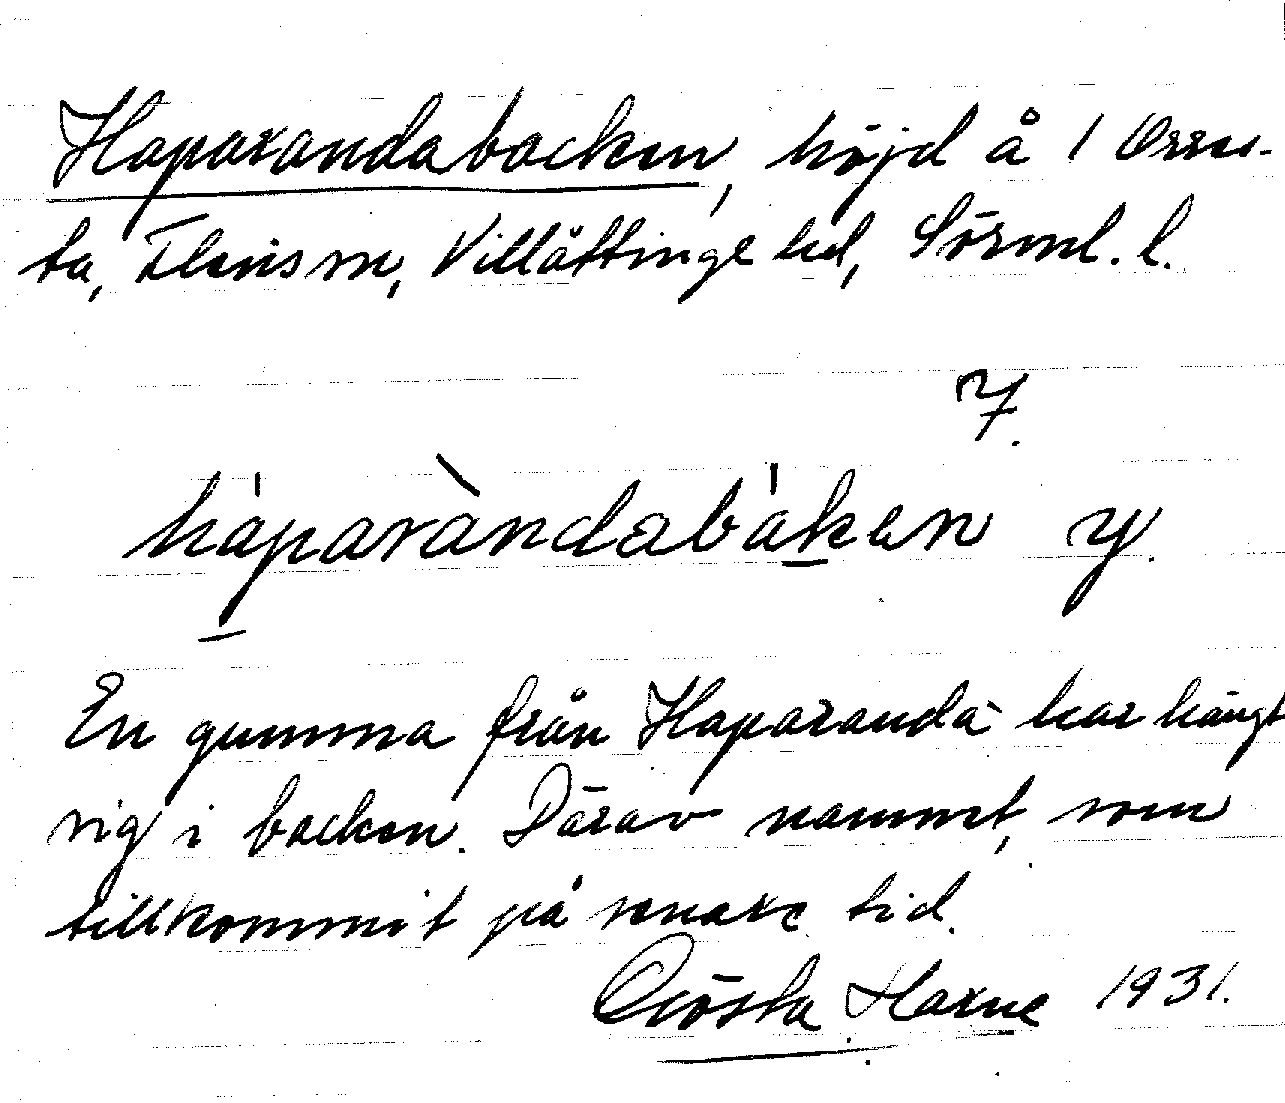 Haparandabacken, höjd å 1 Orres-
ta, Flens sn, Villåttinge hd, Sörml. l.
7.
håparàndabàken y.
En gumma från Haparanda har hängt
sig i backen. Därav namnet, som
tillkommit på senare tid.
Gösta Harne 1931.